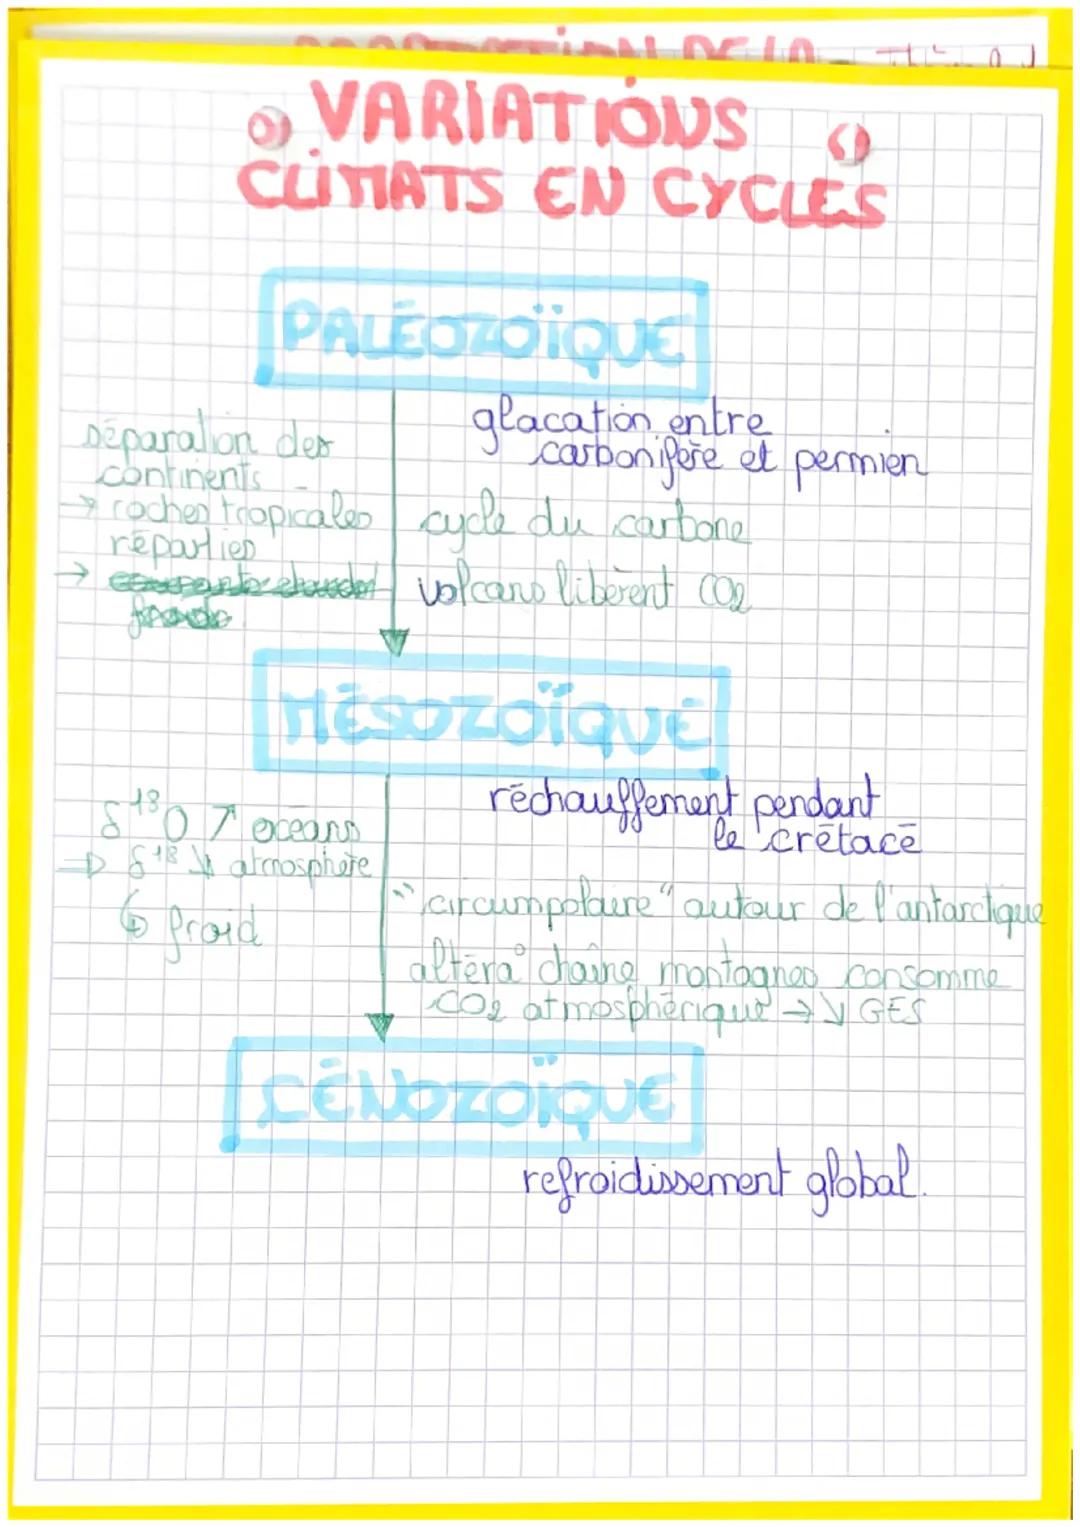 VARIATIONS
CLIMATS EN CYCLES
PALÉOZOÏQUE
glacation entre
carbonifère et permien
séparation des
continents
→ roches tropicales
réparties
→
cycle du carbone
volcans libèrent CO2
MÉSOZOÏQUE
réchauffement pendant
le crétacé
δ¹⁸O ↗ océans
⇒ δ¹⁸ ↘ atmosphère
↳ froid
"circumpolaire" autour de l'antarctique
altéra° chaîne montagnes consomme
CO2 atmosphérique → ↘ GES
CÉNOZOÏQUE
refroidissement global.